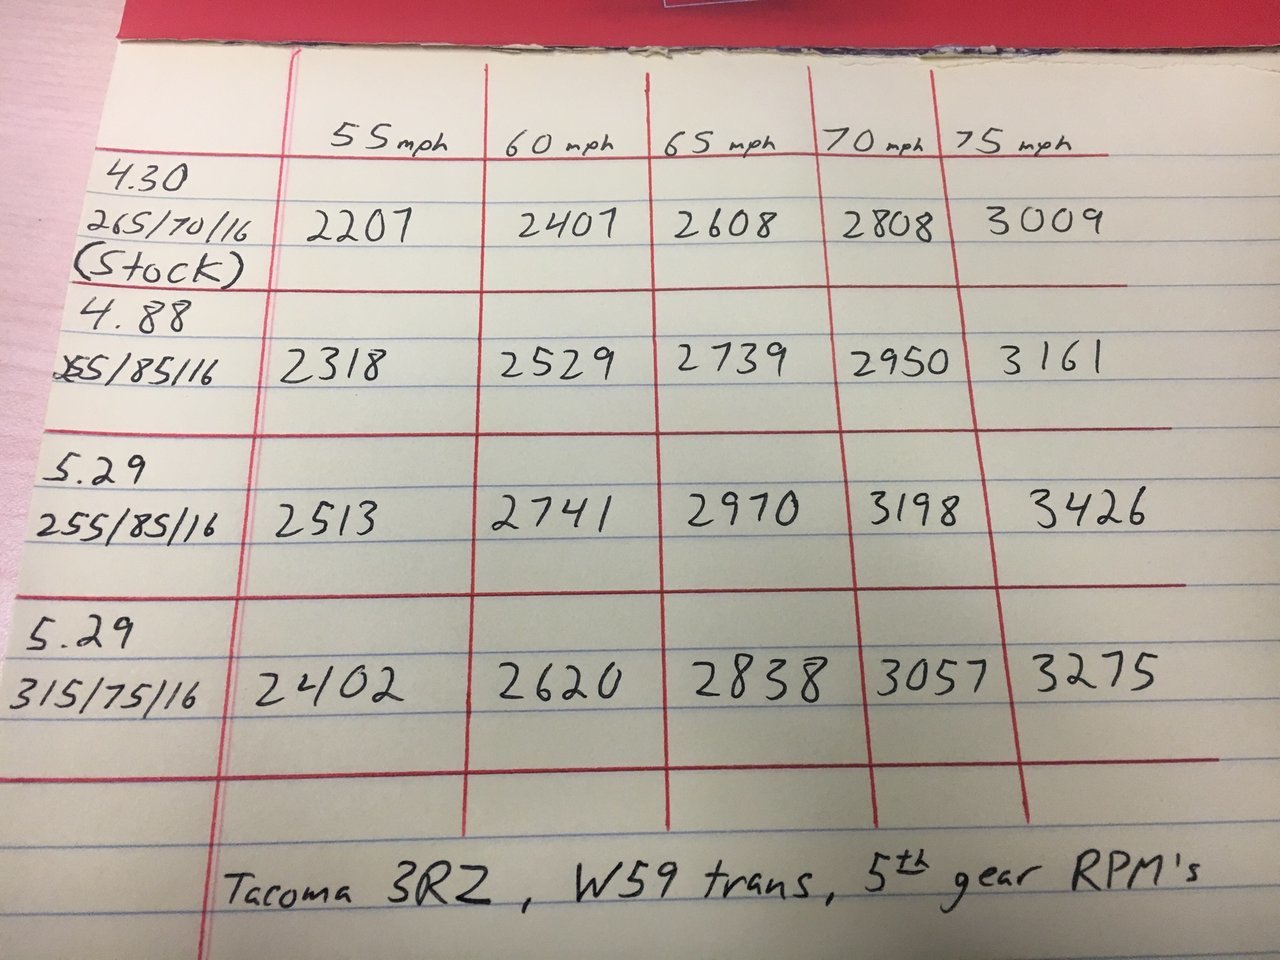 55mph 60 mph 65 mph 70 mph 75 mph
4.30
265/70/16 2207 2407 2608 2808 3009
(Stock)
4.88
255/85/16 2318 2529 2739 2950 3161
5.29
255/85/16 2513 2741 2970 3198 3426
5.29
315/75/16 2402 2620 2838 3057 3275
Tacoma 3RZ, W59 trans, 5th gear RPM's